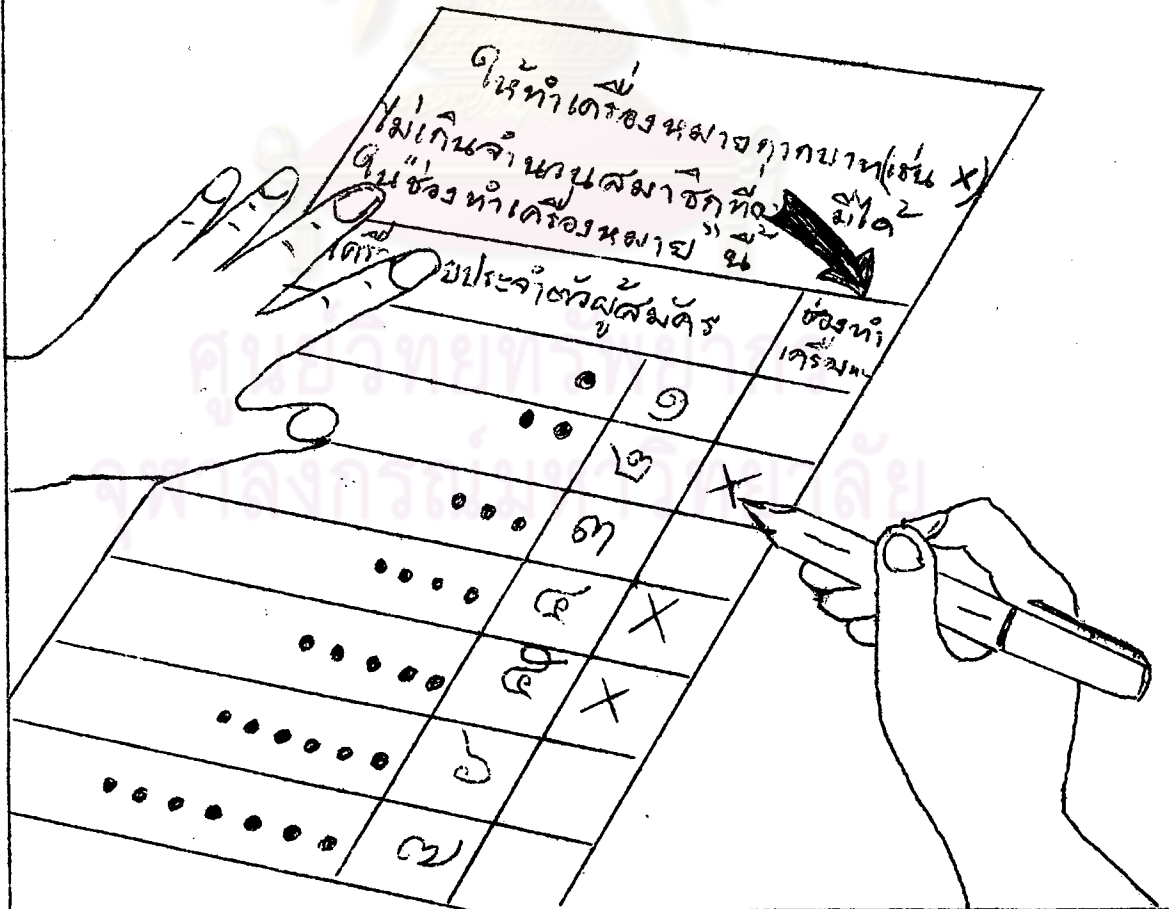 ให้ทำเครื่องหมายกากบาท(เช่น x)
ไม่เกินจำนวนสมาชิกที่ มีได้
ในช่องทำเครื่องหมาย" นี้
ประจำตัวผู้สมัคร
ช่องทำ
๑
๒ X
๓
๔ X
๕ X
๖
๗
ศูนย์วิทยทรัพยากร
จุฬาลงกรณ์มหาวิทยาลัย